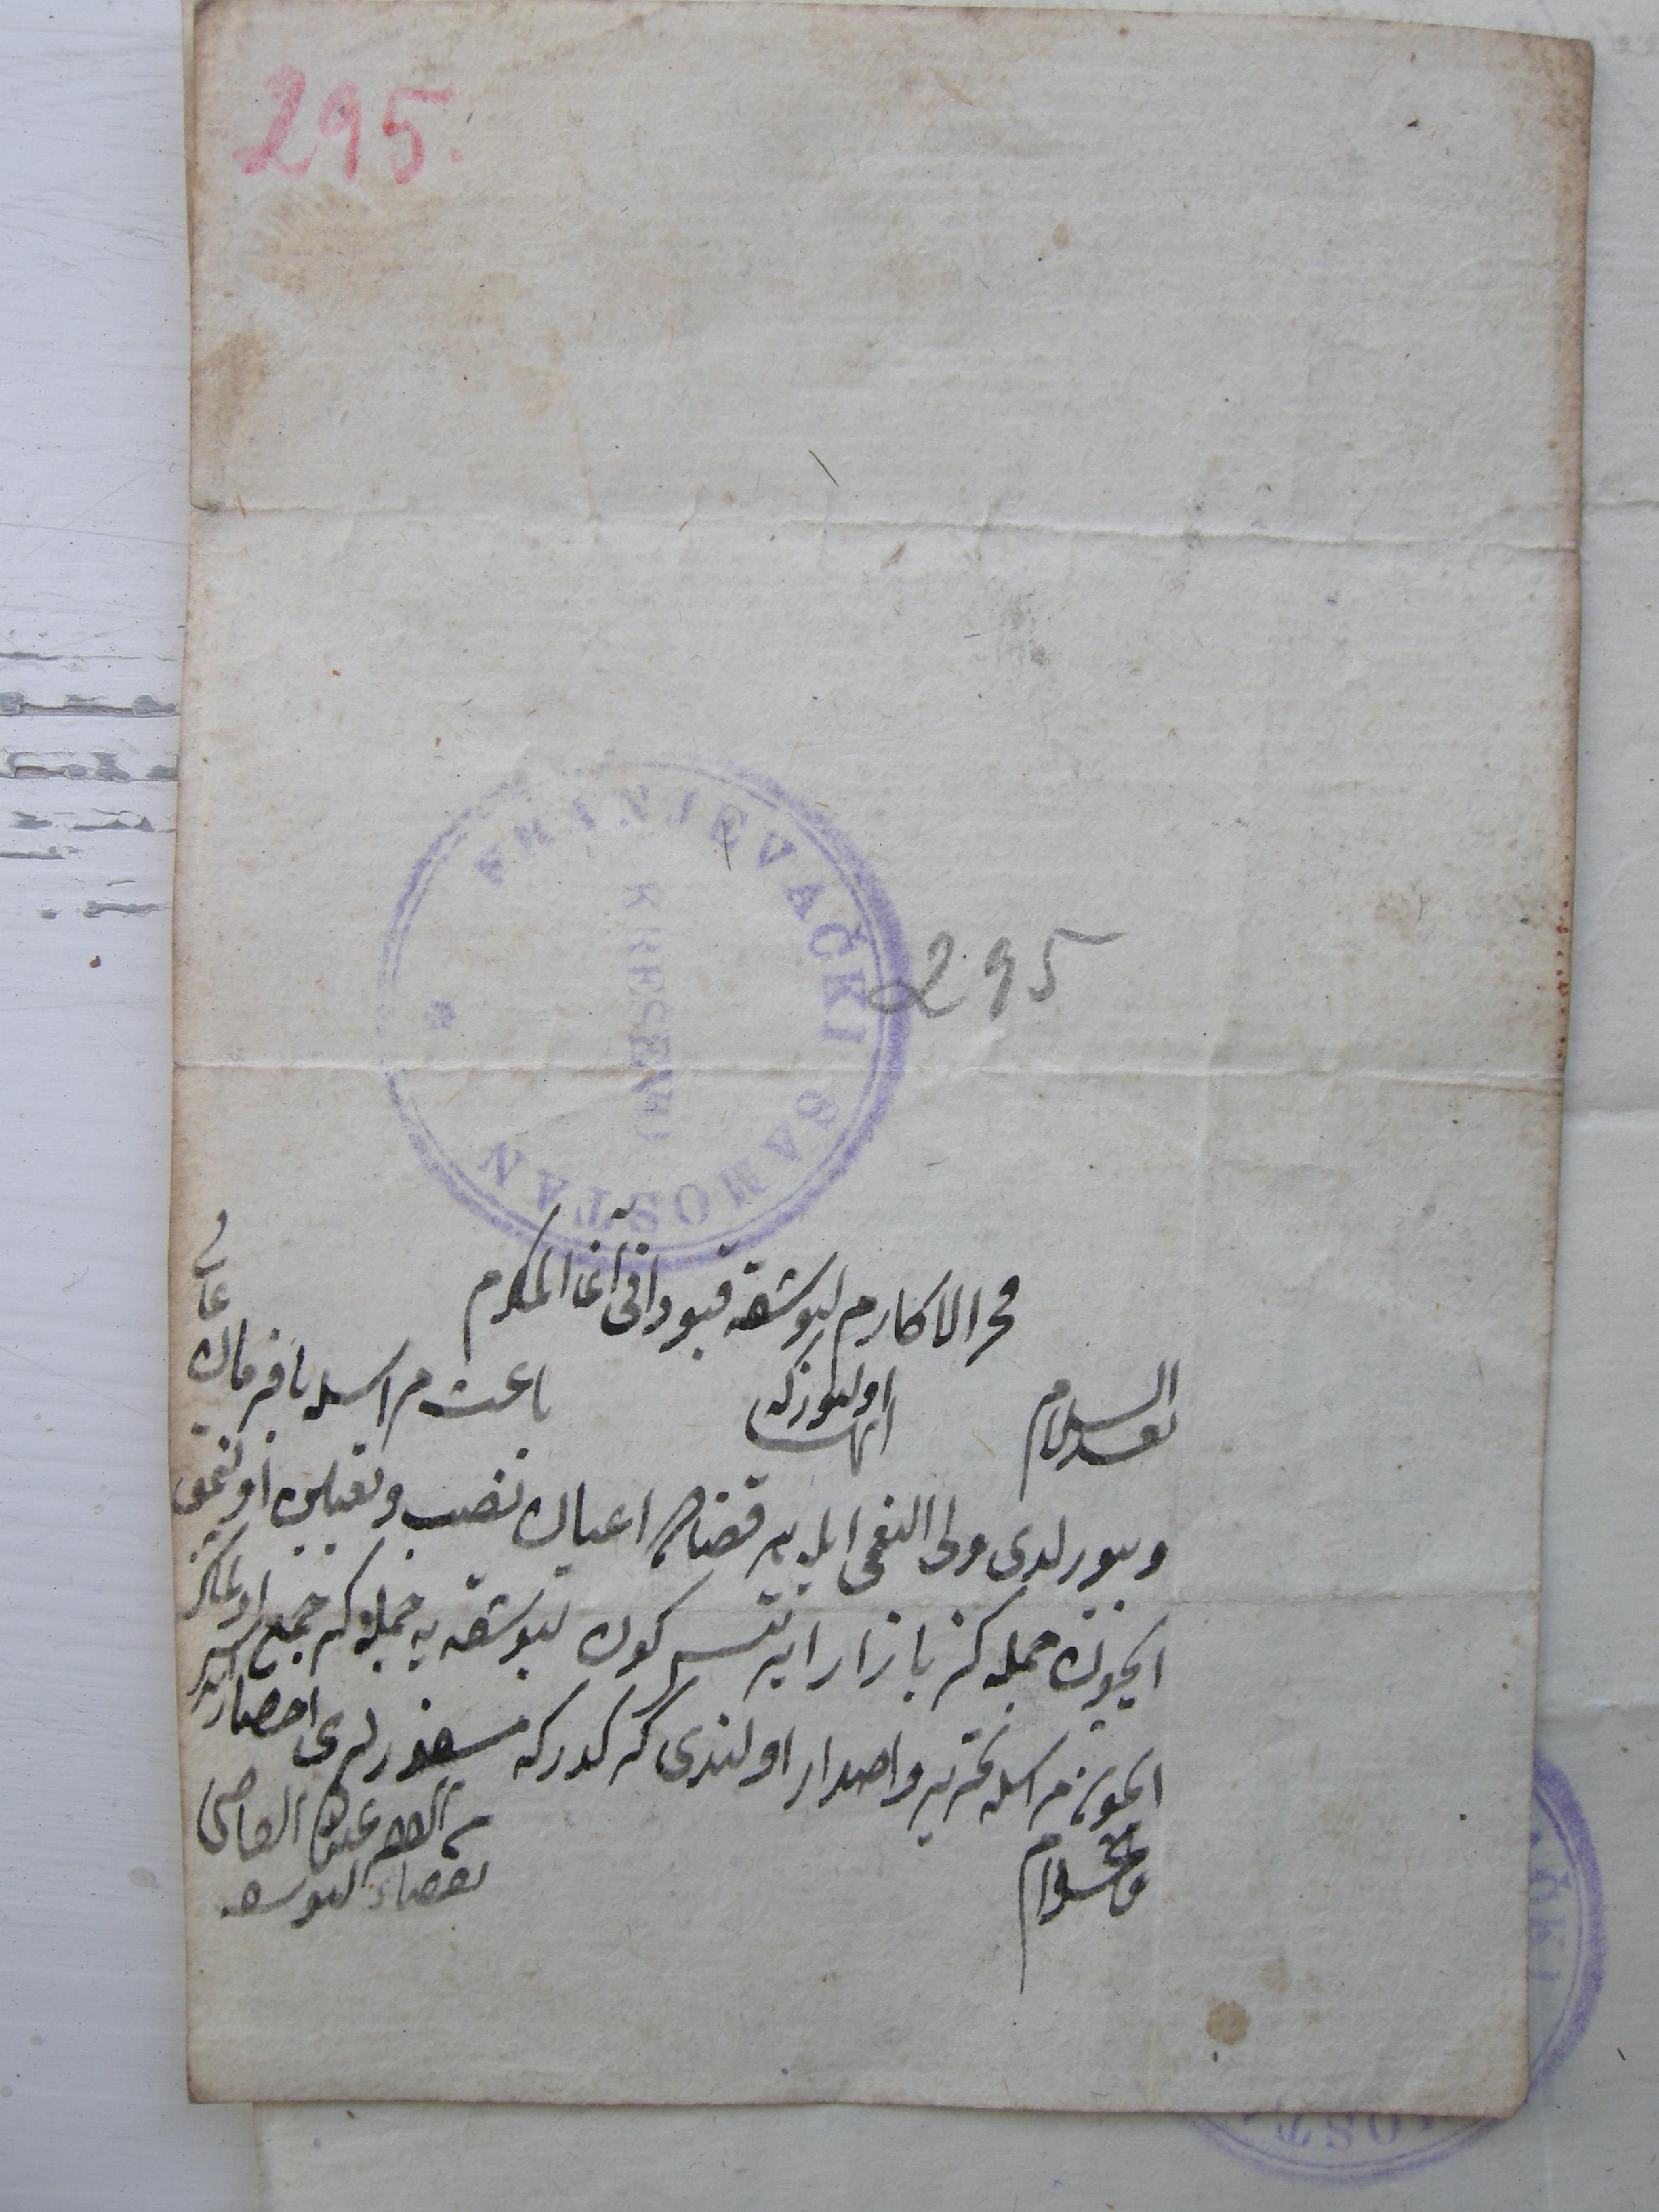 295.
FRANJEVAČKI SAMOSTAN
KREŠEVO
295
فخر الاكارم ليوشقه قپودانى آغا المكرم
بعد السلام انها اولنوركه باعث مراسله بافرمان عالى
وبيورلدى ولى النعمى ايله بر قضايه اعيان نصب وتعيين اولنمق
ايچون جمله كز بازار ايرتسى كون ليوشقه يه جمله كز جمع اولمكز
ايچون مراسله تحرير واصدار اولندى كركدركه احضار
والسلام
الفقير القاضى
بقضاء ليوشقه